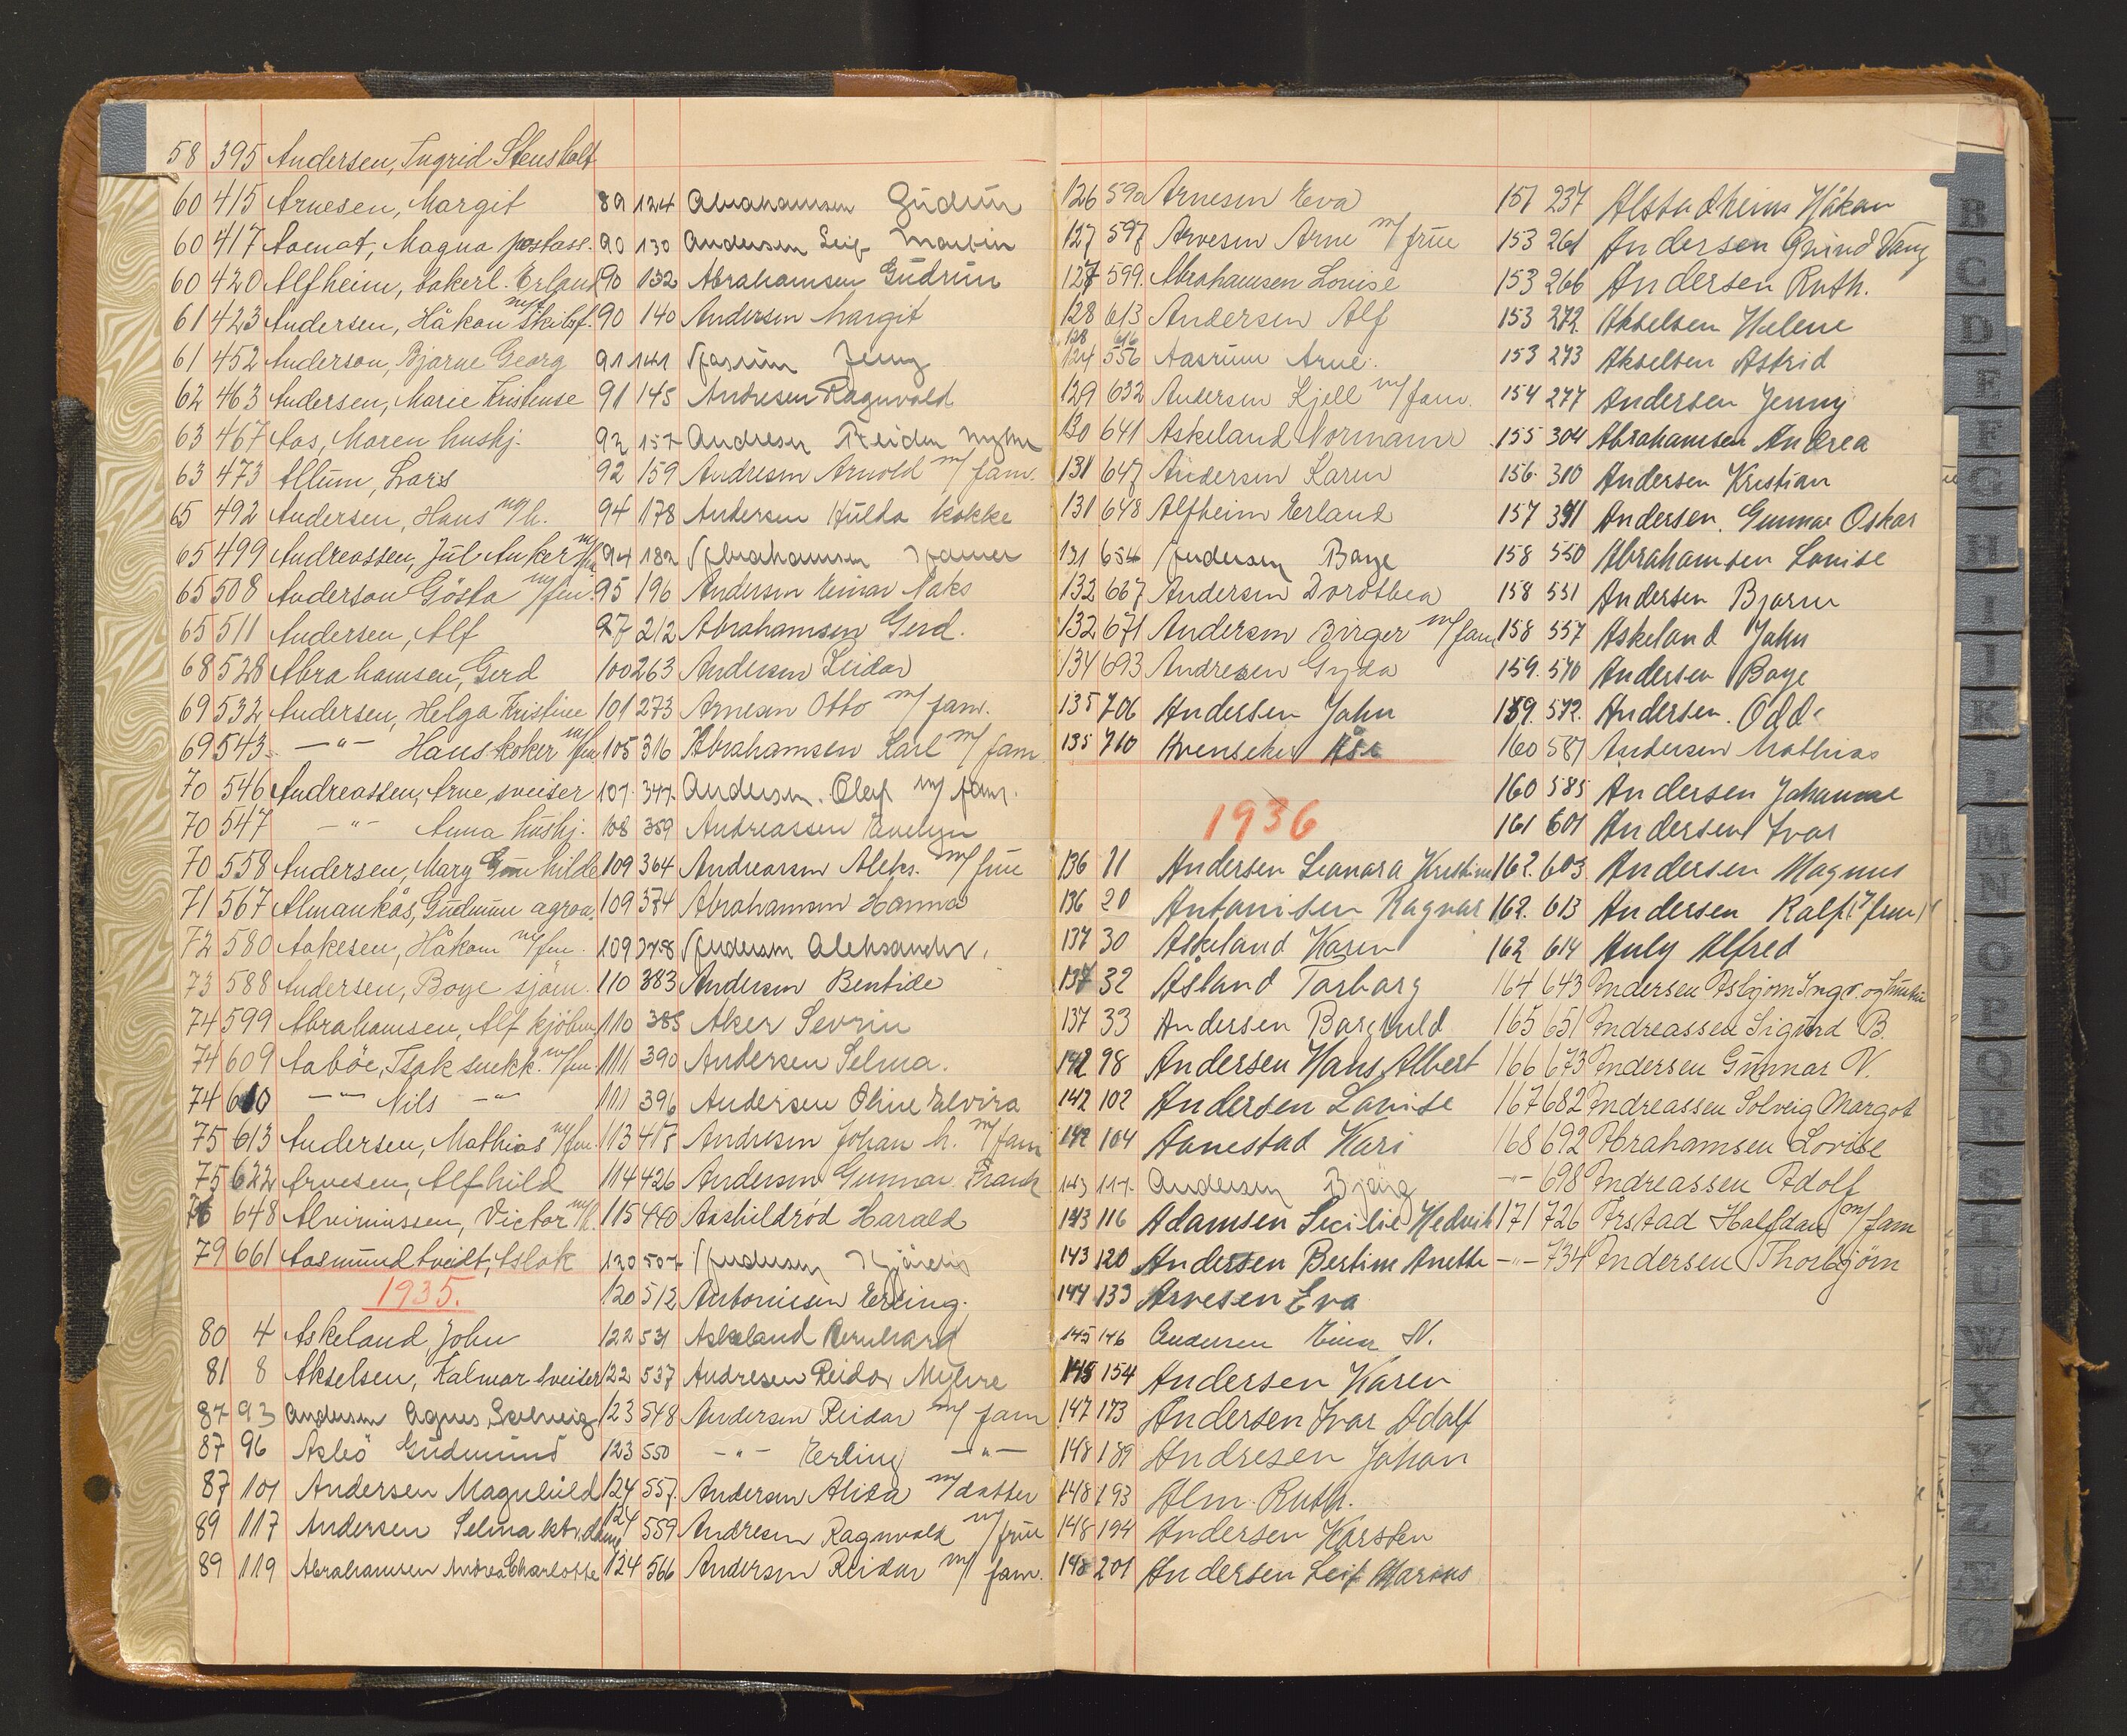 58 395 Andersen, Ingrid Stensholt
60 415 Arnesen, Margit
60 417 Aamot, Magna postass.
60 420 Alfheim, bakerl. Erland
61 423 Andersen, Håkon m/f skibsf.
61 452 Anderson, Bjarne Georg
62 463 Andersen, Marie Kristense
63 467 Aas, Maren hushj.
63 473 Allum, Lars
65 492 Andersen, Hans m/h.
65 499 Andreassen, Jul. Anker
65 508 Anderson Gösta m/fru.
65 511 Andersen, Alf
68 528 Abrahamsen, Gerd
69 532 Andersen, Helga Kristine
69 543 —"— Hans koker m/fru
70 546 Andreassen, Arne, sveiser
70 547 —"— Anna hushj.
70 558 Andersen, Mary Gunhilde
71 567 Almankås, Gudmun agron.
72 580 Aakesen, Håkon m/fru.
73 588 Andersen, Boye sjøm.
74 599 Abrahamsen, Alf kjöbm.
74 609 Aaböe, Isak snekk. m/fru
74 610 —"— Nils —"—
75 613 Andersen, Mathias m/fru
75 622 Arvesen, Alfhild
76 648 Victor m/h.
79 661 Aasmundtveidt, Aslak
1935.
80 4 Askeland, John
81 8 Akselsen, Kalmar sveiser
87 93 Andersen Agnes Solveig
87 96 Asbö Gudmund
87 101 Andersen Magnhild
89 117 Andersen Selma
89 119 Abrahamsen Andrea Charlotte
89 124 Abrahamsen Gudrun
90 130 Andersen Leif Martin
90 132 Abrahamsen Gudrun
90 140 Andersen Margit
91 141 Aasrum Jenny
91 145 Andresen Ragnvald
92 157 Andresen Reidar Myhre
92 159 Andresen Arnold m/ fam.
94 178 Andersen Hulda kokke
94 182 Abrahamsen
95 196 Andersen Einar Naks
97 212 Abrahamsen Gerd.
100 263 Andersen Leidar
101 273 Arnesen Otto m/ fam.
105 316 Abrahamsen Karl m/ fam
107 347 Andersen. Olaf m/ fam.
108 359 Andreassen Evelyn
109 364 Andreassen Aleks. m/ frue
109 374 Abrahamsen Hanna
109 378 Andersen Aleksander.
110 383 Andersen Bentide
110 385 Aker Sevrin
111 390 Andersen Selma.
111 396 Andersen Oline Elvira
113 418 Andresen Johan h. m/ fam
114 426 Andersen Gunnar Frank
115 440 Aashildrød Harald
120 507 Andersen Hjørdis
120 512 Antonisen Erling.
122 531 Askeland Bernhard
122 537 Andresen Reidar Myhre
123 548 Andersen Reidar m/ fam
123 550 —"— Erling —"—
124 557. Andersen Alida m/datter
124 559 Andresen Ragnvald m/ frue
124 566 Andersen Reidar m/ fam.
126 590 Arnesen Eva
127 597 Arvesen Arne m/ frue
127 599. Abrahamsen Louise
128 613 Andersen Alf
128 616
124 556 Aasrum Arne.
129 632 Andersen Kjell m/ fam.
130 641 Askeland Normann
131 647 Andersen Karen
131 648 Alfheim Erland
131 654 Andersen Boye
132 667 Andersen Dorothea
132 671 Andersen Birger m/ fam
134 693 Andresen Gyda
135 706 Andersen John
135 710 Åse
1936
136 11 Andersen Leonora Kristine
136 20 Antonisen Ragnar
137 30 Askeland Karen
137 32 Åsland Torborg
137 33 Andersen Borghild
142 98 Andersen Hans Albert
142 102 Andersen Louise
142 104 Aanestad Kari
143 117 Andersen Bjørg
143 116 Adamsen Secilie Hedvik
143 120 Andersen Bertine Anette
144 133 Arvesen Eva
145 146 Andersen Einar N.
145 154 Andersen Karen
147 173 Andersen Ivar Adolf
148 189 Andresen Johan
148 193 Alm. Ruth.
148 194 Andersen Karsten
148 201 Andersen Leif Marius
151 237 Alstadheim Håkon
153 261 Andersen Grind Vang
153 266 Andersen Ruth.
153 272. Akselsen Helene
153 273 Akselsen Astrid
154 277 Andersen Jenny
155 304 Abrahamsen Andrea
156 310 Andersen Kristian
157 391 Andersen. Gunnar Oskar
158 550 Abrahamsen Louise
158 551 Andersen Bjarne
158 557 Askeland John
159. 570 Andersen Boye
159. 572. Andersen. Odd
160 587 Andersen Mathias
160 585 Andersen Johanne
161 601 Andersen Ivar
162. 603 Andersen Magnus
162. 613 Andersen Ralf (m/ frue)
162 614 Auly Alfred
164 643 Andersen Asbjørn Ingv.
165 651 Andreassen Sigurd B.
166 673 Andersen Gunnar V.
167 682 Andreassen Solveig Margot
168 692 Abrahamsen Lovise
—"— 698 Andreassen Adolf
171 726 Arstad Halfdan m/ fam
—"— 734 Andersen Thorbjørn
B
C
D
E
F
G
H
I
J
K
L
M
N
O
P
Q
R
S
T
U
V
W
X
Y
Z
Æ
Ø